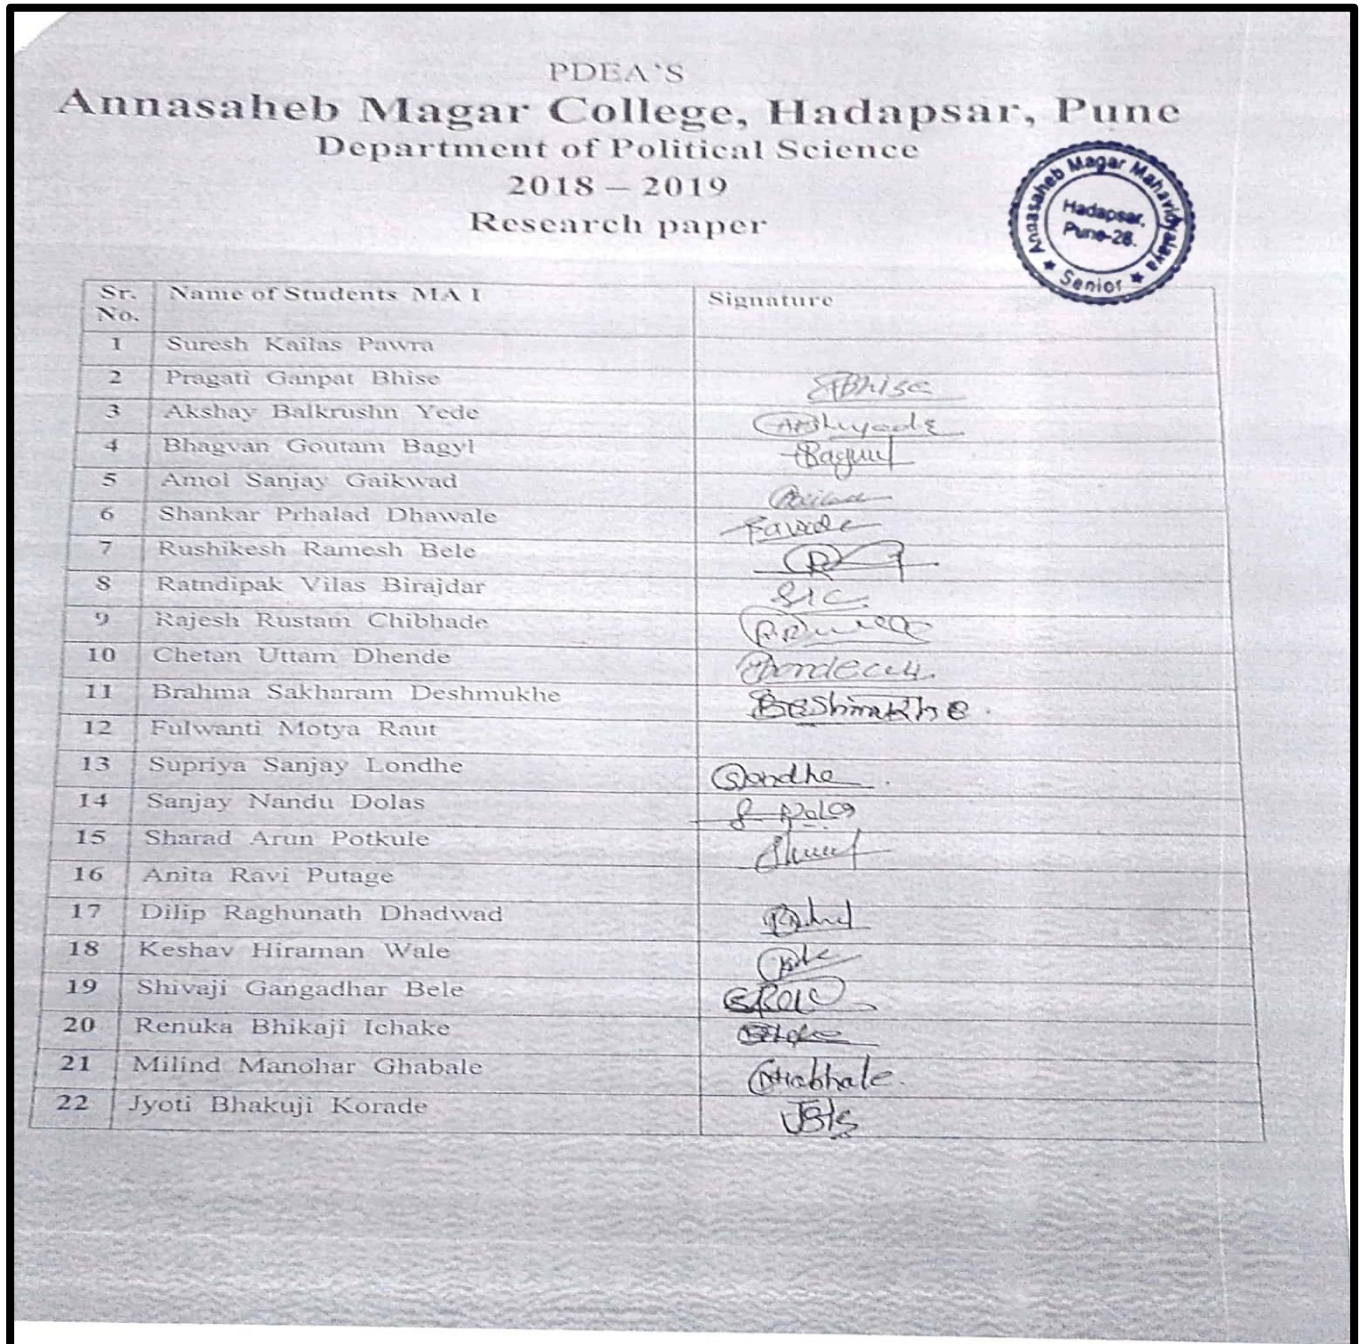 PDEA`S
Annasaheb Magar College, Hadapsar, Pune
Department of Political Science
2018 – 2019
Research paper
Annasaheb Magar Mahavidyalaya ★ Senior ★
Hadapsar,
Pune-28.
Sr. No. Name of Students MA I Signature
1 Suresh Kailas Pawra
2 Pragati Ganpat Bhise Bhise
3 Akshay Balkrushn Yede
4 Bhagvan Goutam Bagyl Bagul
5 Amol Sanjay Gaikwad
6 Shankar Prhalad Dhawale
7 Rushikesh Ramesh Bele
8 Ratndipak Vilas Birajdar
9 Rajesh Rustam Chibhade
10 Chetan Uttam Dhende
11 Brahma Sakharam Deshmukhe
12 Fulwanti Motya Raut
13 Supriya Sanjay Londhe
14 Sanjay Nandu Dolas
15 Sharad Arun Potkule
16 Anita Ravi Putage
17 Dilip Raghunath Dhadwad
18 Keshav Hiraman Wale
19 Shivaji Gangadhar Bele
20 Renuka Bhikaji Ichake
21 Milind Manohar Ghabale
22 Jyoti Bhakuji Korade